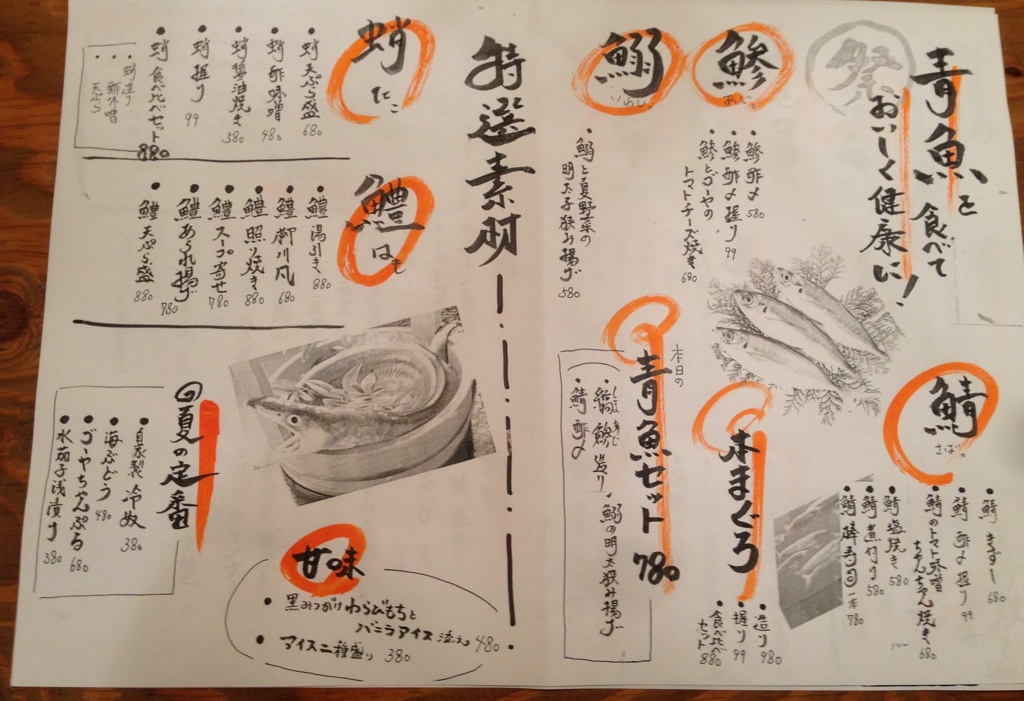 祭
青魚を食べて
おいしく健康に!
鯖
さば
鯖きずし 680
鯖酢〆握り 99
鯖のトマト味噌
ちゃんちゃん焼き 680
鯖塩焼き 580
鯖煮付け 580
鯖棒寿司一本 780
鯵
あじ
鯵酢〆 580
鯵酢〆握り 99
鯵とゴーヤの
トマトチーズ焼き 680
鰯
いわし
鰯と夏野菜の
明太子挟み揚げ 580
本まぐろ
造り 980
握り 99
食べ比べ
セット 880
本日の
青魚セット 780
縞鯵造り
しま あじ
鯖酢〆
鰯の明太挟み揚げ
特選素材
蛸
たこ
蛸天ぷら盛 680
蛸酢味噌 480
蛸醤油焼き 580
蛸握り 99
蛸食べ比べセット 880
蛸造り
酢味噌
天ぷら
鱧
はも
鱧湯引き 880
鱧柳川風 680
鱧照り焼き 880
鱧スープ寄せ 780
鱧あられ揚げ 780
鱧天ぷら盛 880
夏の定番
自家製冷奴 380
海ぶどう 480
ゴーヤちゃんぷる 680
水茄子浅漬け 380
甘味
黒みつがけわらびもちと
バニラアイス添え 480
アイス二種盛り 380